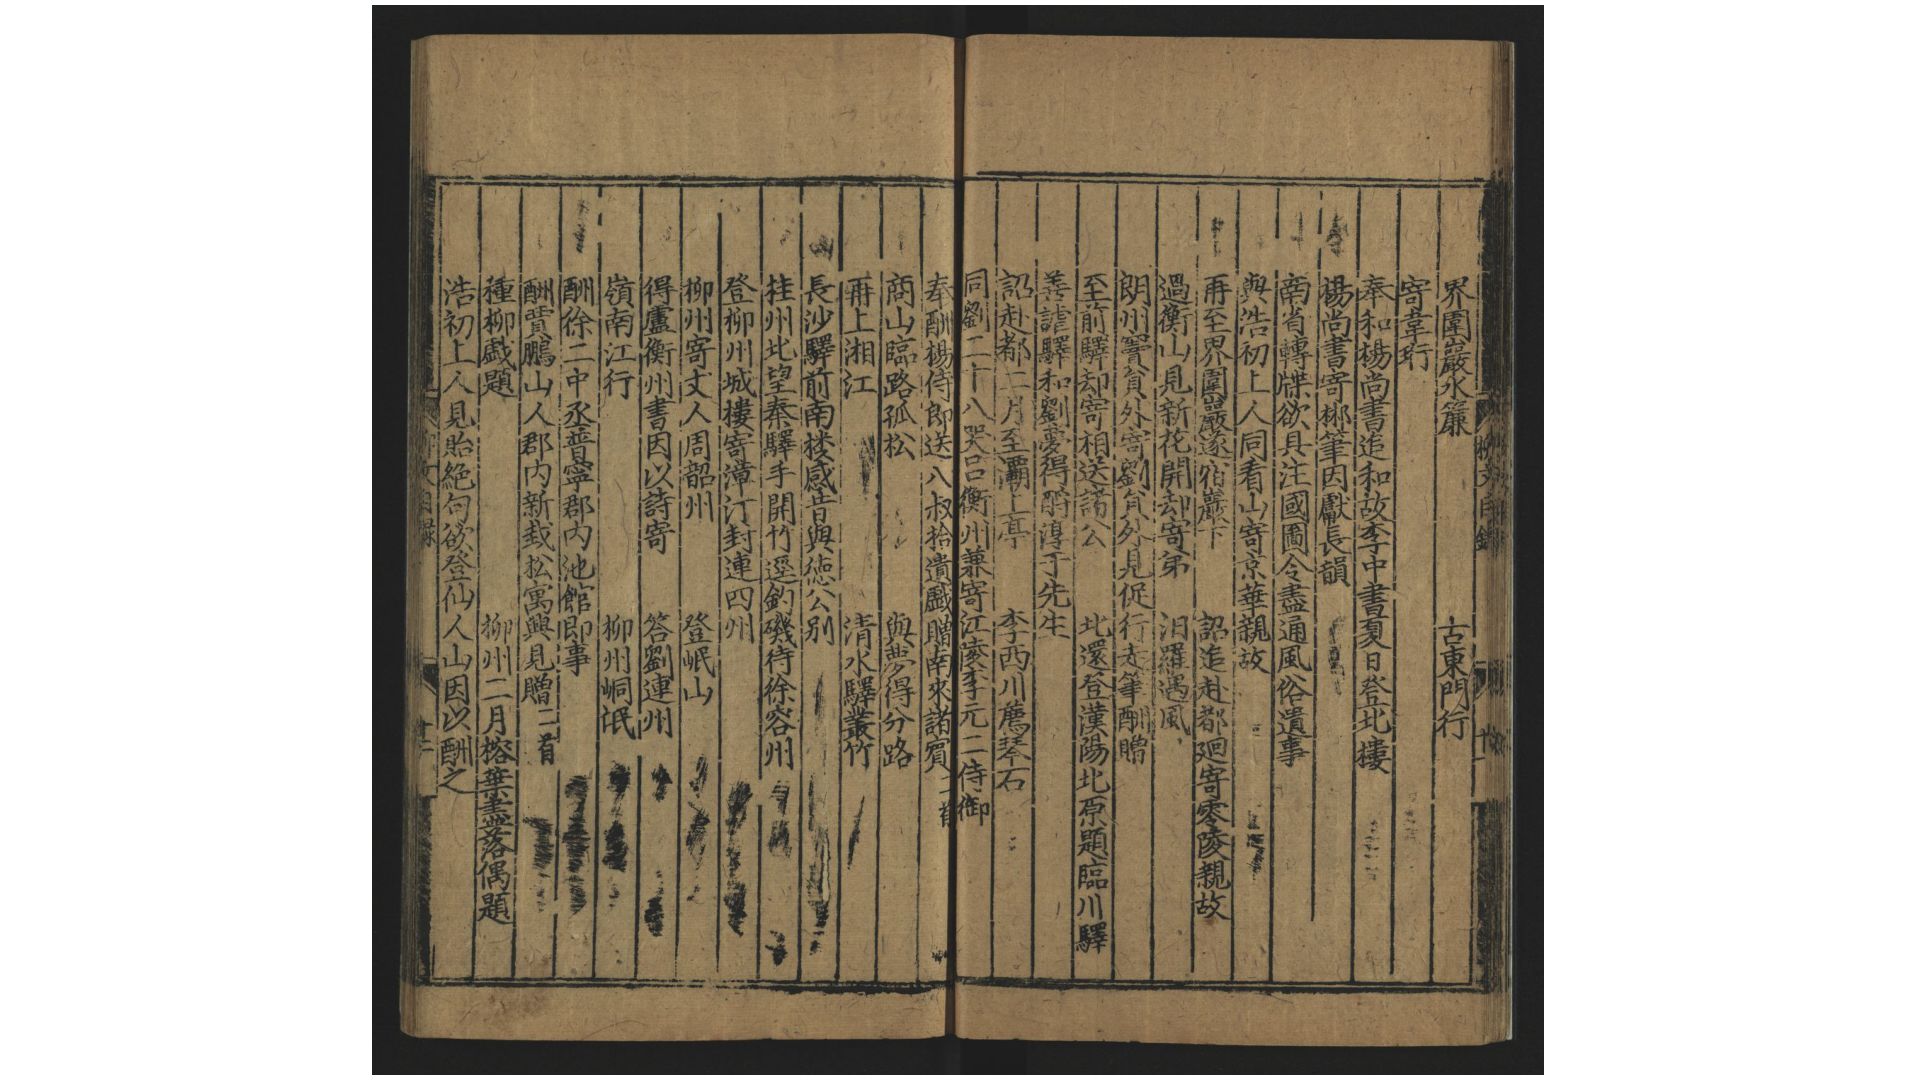 界圍巖水簾 古東門行
寄韋珩
奉和楊尚書追和故李中書夏日登北樓
楊尚書寄郴筆因獻長韻
南省轉牒欲具注國圖令盡通風俗遺事
與浩初上人同看山寄京華親故
再至界圍巖遂宿巖下 詔追赴都廻寄零陵親故
過衡山見新花開却寄弟 汨羅遇風
朗州竇貟外寄劉貟外見促行走筆酬贈
至前驛却寄相送諸公 北還登漢陽北原題臨川驛
善謔驛和劉夢得酹淳于先生
詔赴都二月至灞上亭 李西川薦琴石
同劉二十八哭呂衡州兼寄江陵李元二侍御
奉酬楊侍郎送八叔拾遺戲贈南來諸賓二首
商山臨路孤松 與夢得分路
再上湘江 清水驛叢竹
長沙驛前南楼感昔與德公别
桂州北望秦驛手開竹逕釣磯待徐容州
登柳州城樓寄漳汀封連四州
柳州寄丈人周韶州 登岷山
得盧衡州書因以詩寄 答劉連州
嶺南江行 柳州峒氓
酬徐二中丞普寧郡内池館即事
酬賈鵬山人郡内新栽松寓興見贈二首
種柳戯題 柳州二月榕葉盡落偶題
浩初上人見貽絶句欲登仙人山因以酬之